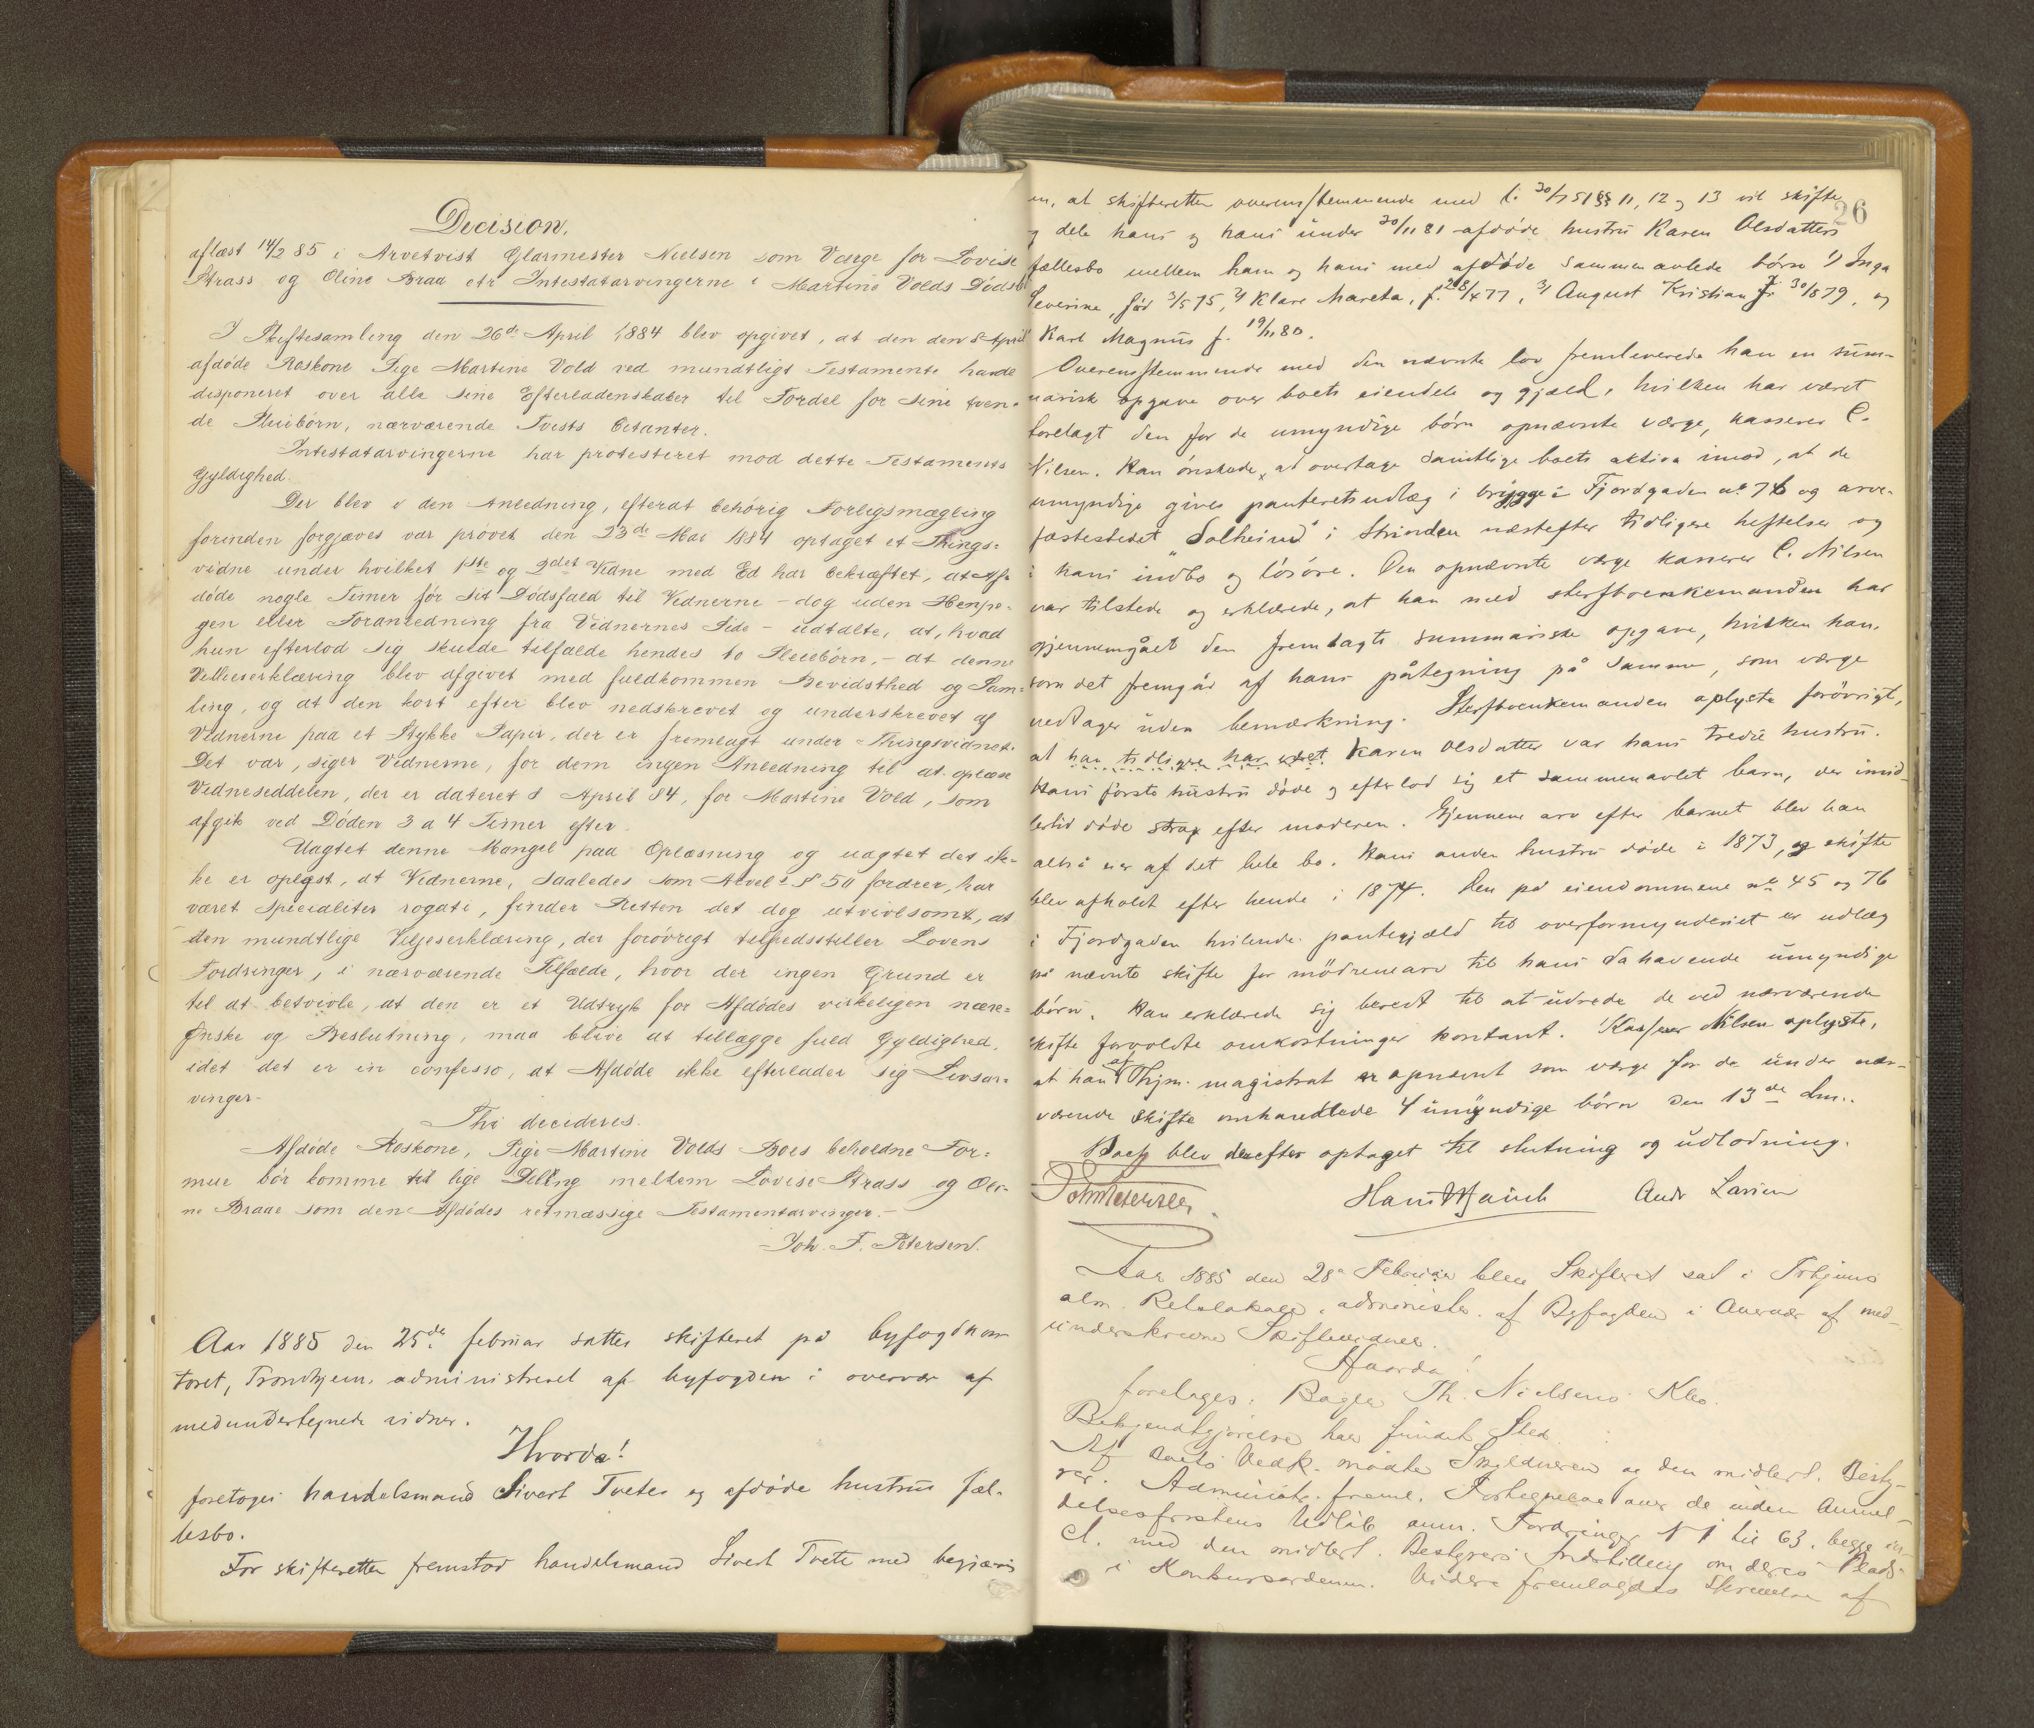 Decision.
aflæst 14/2 85 i Arvetvist Glarmester Nielsen som Værge for Lovise
Strass og Oline Braa ctr Intestatarvingerne i Martine Volds Dødsb
I Skiftesamling den 26de April 1884 blev opgivet, at den den 8 April
afdøde Roskone Pige Martine Vold ved mundtligt Testamente havde
disponeret over alle sine Efterladenskaber til Fordel for sine tven-
de Pleiebørn, nærværende Tvists Citanter.
Intestatarvingerne har protesteret mod dette Testaments
Gyldighed.
Der blev i den Anledning, efterat behørig Forligsmægling
forinden forgjæves var prøvet den 23de Mai 1884 optaget et Things-
vidne under hvilket 1ste og 2det Vidne med Ed har bekræftet, at Af-
døde nogle Timer før sit Dødsfald til Vidnerne – dog uden Henpe-
gen eller Foranledning fra Vidnernes Side – udtalte, at, hvad
hun efterlod sig skulde tilfalde hendes to Pleiebørn, – at denne
Villieserklæring blev afgivet med fuldkommen Bevidsthed og Sam-
ling, og at den kort efter blev nedskrevet og underskrevet af
Vidnerne paa et Stykke Papir, der er fremlagt under Thingsvidnet.
Det var, siger Vidnerne, for dem ingen Anledning til at oplæse
Vidneseddelen, der er dateret 8 April 84, for Martine Vold, som
afgik ved Døden 3 a 4 Timer efter.
Uagtet denne Mangel paa Oplæsning og uagtet det ik-
ke er oplyst, at Vidnerne, saaledes som Arvel. § 50 fordrer, har
været specialiter rogati, finder Retten det dog utvivlsomt, at
den mundtlige Viljeserklæring, der forøvrigt tilfredsstiller Lovens
Fordringer, i nærværende Tilfælde, hvor der ingen Grund er
til at betvivle, at den er et Udtryk for Afdødes virkeligen nære-
Ønske og Beslutning, maa blive at tillægge fuld Gyldighed,
idet det er in confesso, at Afdøde ikke efterlader sig Livsar-
vinger.
Thi decideres.
Afdøde Roskone, Pige Martine Volds Boes beholdne For-
mue bør komme til lige Deling mellem Lovise Strass og Oli-
ne Braae som den Afdødes retmæssige Testamentarvinger.
Joh. F. Petersen.
Aar 1885 den 25de februar sattes skifteret på byfogdkon
toret, Trondhjem, administreret af byfogden i overvær af
medundertegnede vidner.
Hvorda!
foretoges handelsmand Sivert Tvetes og afdøde hustrus fæl-
lesbo.
For skifteretten fremstod handelsmand Sivert Tvete med begjæri
26
en, at skifteretten overensstemmende med l. 30/7 51 §§ 11, 12 og 13 vil skifte
g dele hans og hans under 20/11 81 afdøde hustru Karen Olsdatters
fællesbo mellem ham og hans med afdøde sammenavlede børn 1) Inga
Severine, född 3/5 75, 2) Klare Mareta, f. 28/4 77, 3) August Kristian f. 30/8 79, og
Karl Magnus f. 19/11 80.
Overensstemmende med den nævnte lov fremleverede han en sum-
marisk opgave over boets eiendele og gjæld, hvilken har været
forelagt den for de umyndige børn opnævnte værge, kasserer C.
Nilsen. Han ønskede, at overtage samtlige boets aktiva imod, at de
umyndige gives panteretsudlæg i brygge i Fjordgaden no 76 og arve-
fæstestedet "Solheim" i Strinden næstefter tidligere heftelser og
i hans indbo og løsøre. Den opnævnte værge kasserer C. Nilsen
var tilstede og erklærede, at han med sterfboenkemanden har
gjennemgået den fremlagte summariske opgave, hvilken han,
som det fremgår af hans påtegning på samme, som værge
vedtager uden bemærkning. Sterfboenkemanden oplyste forøvrigt,
at han tidligere har været Karen Olsdatter var hans tredie hustru.
Hans første hustru døde og efterlod sig et sammenavlet barn, der imid-
lertid døde strax efter moderen. Gjennem arv efter barnet blev han
altså eier af det hele bo. Hans anden hustru døde i 1873, og skifte
blev afholdt efter hende i 1874. Den på eiendommene no 45 og 76
i Fjordgaden hvilende pantegjæld til overformynderiet er udlæg
på nævnte skifte for mødrenearv til hans dahavende umyndige
børn. Han erklærede sig beredt til at udrede de ved nærværende
skifte forvoldte omkostninger kontant. Kasserer Nilsen oplyste,
at han af Thjm. magistrat er opnævnt som værge for de under nær-
værende skifte omhandlede 4 umyndige børn den 13de dm..
Boet blev derefter optaget til slutning og udlodning.
Joh Petersen. Andr Larsen
Aar 1885 den 28de Februar blev Skifteret sat i Trhjems
alm. Retslokale, administr. af Byfogden i Overvær af med-
underskrevne Skiftevidner.
Hvorda!
foretoges: Bager Th. Nielsens Kbo.
Bekjendtgjørelse har fundet Sted.
Af Boets Vedk. mødte Skyldneren og den midlert. Besty-
rer. Administr. freml. Fortegnelse over de inden Anmel-
delsesfristens Udløb anm. Fordringer N 1 til 63, begge in-
cl. med den midlert. Bestyrers Indstilling om deres Plads
i Konkursordenen. Videre fremlagdes Skrivelse af